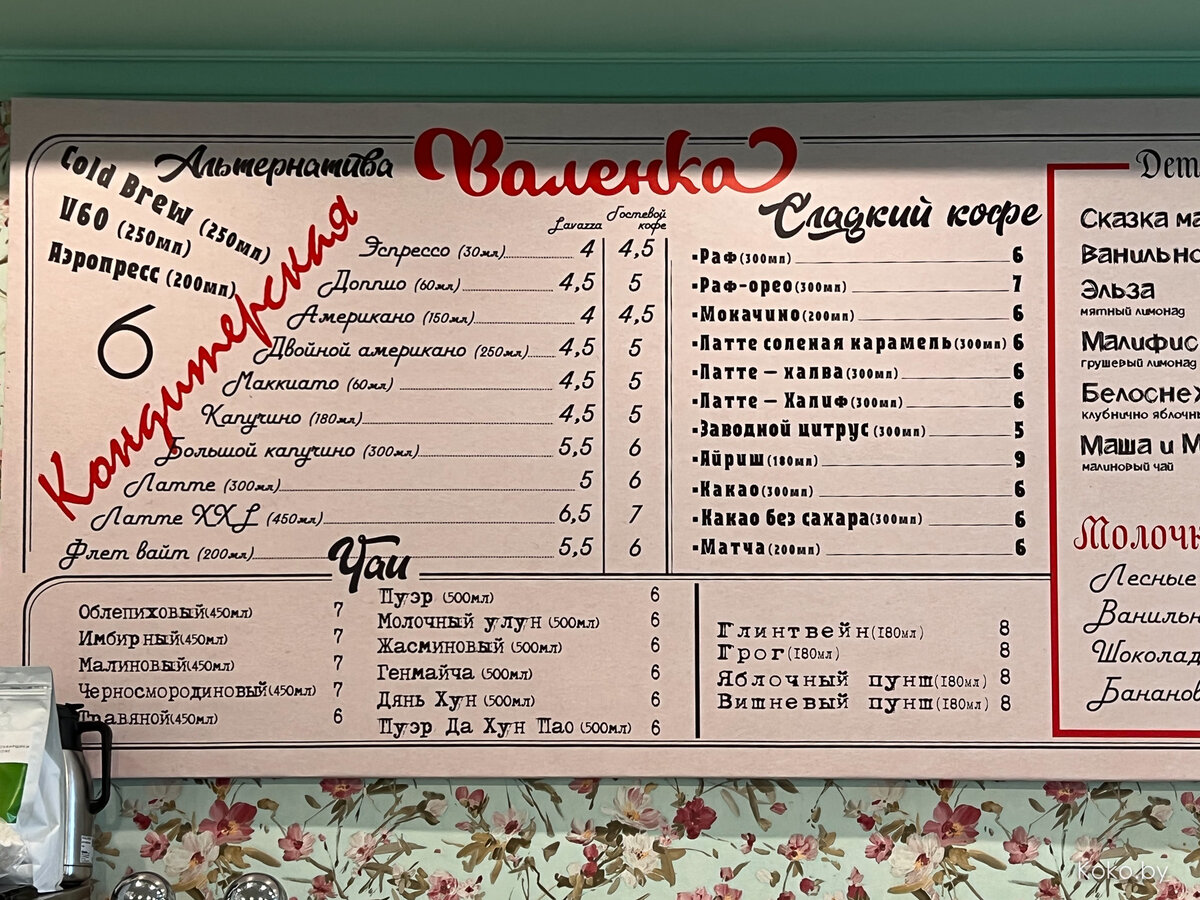 Валенка
Кондитерская
Альтернатива
Cold Brew (250мл)
V60 (250мл)
Аэропресс (200мл)
6
Lavazza
Гостевой кофе
Эспрессо (30мл) 4 4,5
Доппио (60мл) 4,5 5
Американо (150мл) 4 4,5
Двойной американо (250мл) 4,5 5
Маккиато (60мл) 4,5 5
Капучино (180мл) 4,5 5
Большой капучино (300мл) 5,5 6
Латте (300мл) 5 6
Латте XXL (450мл) 6,5 7
Флет вайт (200мл) 5,5 6
Сладкий кофе
Раф (300мл) 6
Раф-орео (300мл) 7
Мокачино (200мл) 6
Латте соленая карамель (300мл) 6
Латте – халва (300мл) 6
Латте – Халиф (300мл) 6
Заводной цитрус (300мл) 5
Айриш (180мл) 9
Какао (300мл) 6
Какао без сахара (300мл) 6
Матча (200мл) 6
Чаи
Облепиховый(450мл) 7
Имбирный(450мл) 7
Малиновый(450мл) 7
Черносмородиновый(450мл) 7
Травяной(450мл) 6
Пуэр (500мл) 6
Молочный улун (500мл) 6
Жасминовый (500мл) 6
Генмайча (500мл) 6
Дянь Хун (500мл) 6
Пуэр Да Хун Пао (500мл) 6
Глинтвейн(180мл) 8
Грог(180мл) 8
Яблочный пунш(180мл) 8
Вишневый пунш(180мл) 8
Сказка
Эльза
мятный лимонад
грушевый лимонад
клубнично
Маша и М
малиновый чай
Лесные
Koko.by